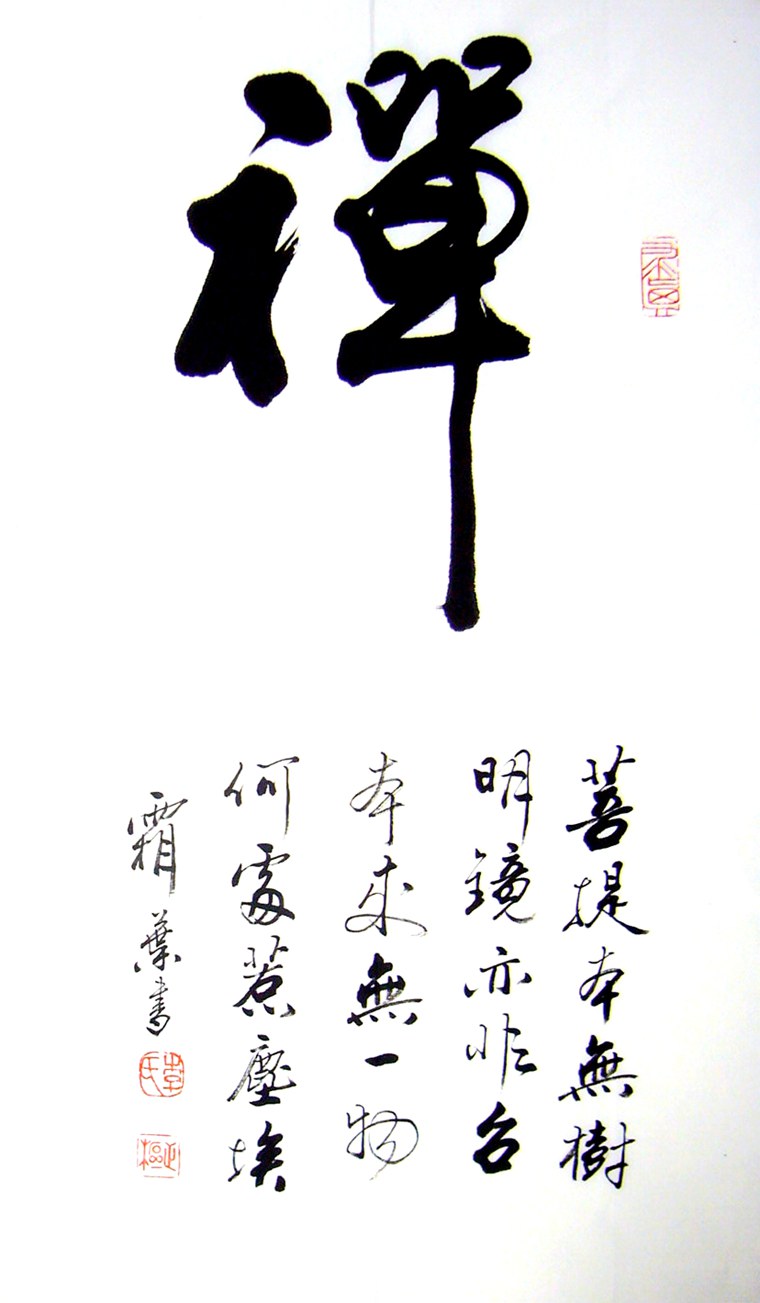 禪
菩提本無樹
明鏡亦非台
本來無一物
何處惹塵埃
霜葉書
李氏